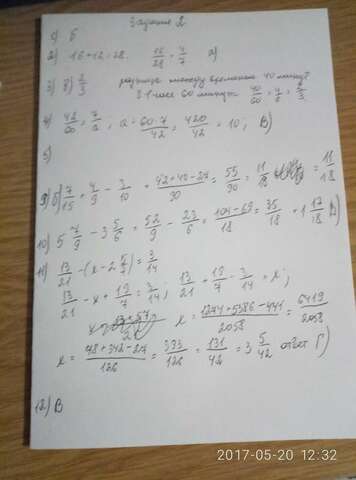 Задание 2
1) Б
2) 16+12=28. 16/28 = 4/7 а)
3) В) 2/3 разница между временем 40 минут
В 1 часе 60 минут. 40/60 = 4/6 = 2/3
4) 42/60 = 7/a, a = 60·7/42 = 420/42 = 10; В)
5)
9) б) 7/15 + 4/9 - 3/10 = 42+40-27/90 = 55/90 = 11/18 11/18
10) 5 7/9 - 3 5/6 = 52/9 - 23/6 = 104-69/18 = 35/18 = 1 17/18 В)
11) 13/21 - (x - 2 5/7) = 3/14
13/21 - x + 19/7 = 3/14; 13/21 + 19/7 - 3/14 = x;
x = 1274+5586-441/2058 = 6419/2058
x = 78+342-27/126 = 393/126 = 131/42 = 3 5/42 ответ Г)
12) В
2017-05-20 12:32